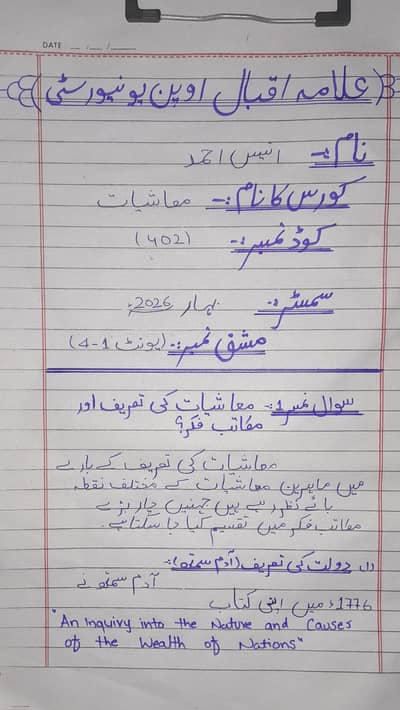 DATE __/__/____
علامہ اقبال اوپن یونیورسٹی
نام:- انیس احمد
کورس کا نام:- معاشیات
کوڈ نمبر:- (402)
سمسٹر:- بہار 2026ء
مشق نمبر:- (یونٹ 1-4)
سوال نمبر 1:- معاشیات کی تعریف اور
مکاتب فکر؟
معاشیات کی تعریف کے بارے
میں ماہرین معاشیات کے مختلف نقطہ
ہائے نظر رہے ہیں جنہیں چار بڑے
مکاتب فکر میں تقسیم کیا جا سکتا ہے.
(1) دولت کی تعریف (آدم سمتھ):-
آدم سمتھ نے
1776ء میں اپنی کتاب
"An Inquiry into the Nature and Causes
of the Wealth of Nations"